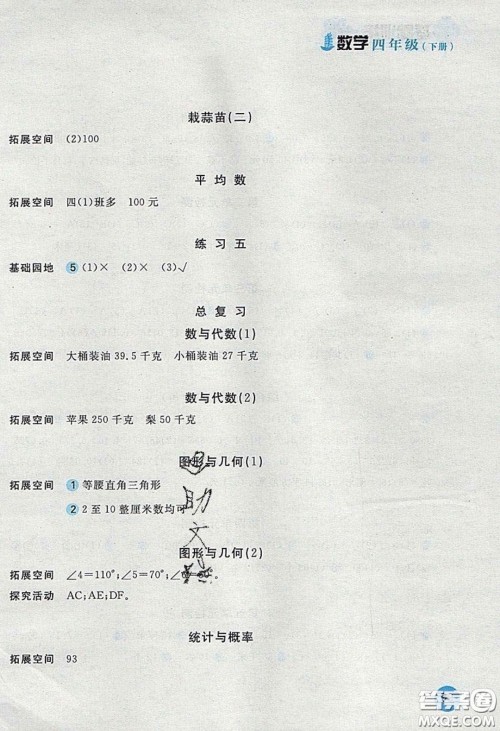 数学 四年级(下册)
栽蒜苗(二)
拓展空间 (2)100
平均数
拓展空间 四(1)班多 100元
练习五
基础园地 5 (1)× (2)× (3)√
总复习
数与代数(1)
拓展空间 大桶装油 39.5 千克 小桶装油 27 千克
数与代数(2)
拓展空间 苹果 250 千克 梨 50 千克
图形与几何(1)
拓展空间 1 等腰直角三角形
2 2 至 10 整厘米数均可
图形与几何(2)
拓展空间 ∠4=110°;∠5=70°;∠6
探究活动 AC;AE;DF。
统计与概率
拓展空间 93
答案圈
MXQE.COM